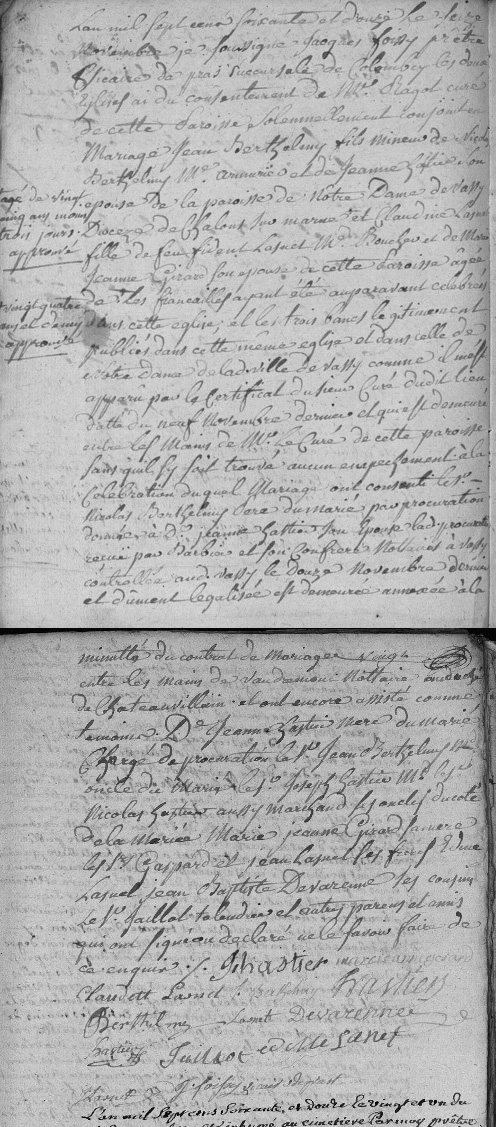 L'an mil sept cent soixante et douze le seize
novembre je soussigné Jacques Foissy prêtre
Vicaire de pras succursale de Colombey les deux
Eglises ai du consentement de Mr. Ragot curé
de cette Paroisse solennellement conjoint en
Mariage Jean Berthelmy fils mineur de Nicolas
Berthelmy Me. armurier et de Jeanne hastier son
agé de vingt
cinq ans moins
trois jours
approuvé
epouse de la paroisse de Nôtre Dame de Vassy
Diocese de Chalons sur marne et Claudine Lasnet
fille de feu Lasnet Md. Boucher et de Marie
Jeanne Girard son epouse de cette Paroisse agée
vingt quatre
ans et demy
approuvé
de Les fiancailles ayant été auparavant celebrés
dans cette eglise, et les trois bancs legitimement
publiés dans cette meme eglise et dans celle de
Notre Dame de lad. ville de Vassy comme il m'est
apparu par le Certificat du sieur Curé dudit lieu
datté du neuf Novembre dernier et qui est demeuré
entre les mains de Mr. Le Curé de cette paroisse
sans quil s'y soit trouvé aucun empeschement a la
Celebration duquel Mariage ont consenti le sr.
Nicolas Berthelmy Pere du marié par procuration
donnée à De. jeanne hastier son epouse lad. procuration
reçue par Barbier et son Confrere Nottaires à Vassy
controllée aud. Vassy le Douze Novembre dernier
et dûment legalisée est demeurée annexée à la
minutte du contrat de Mariage
entre les mains de Vaudemont Nottaire au duché
de Chateauvillain. et ont encore assisté comme
temoins. De. Jeanne hastier mere du marié
Chargé de procuration le sr. Jean Berthelmy
oncle du marié le sr. Joseph hastier Md. le sr.
Nicolas hastier aussy marchand ses oncles du coté
de la Mariée Marie jeanne Girard sa mere
les srs. Gaspard et jean Lasnet ses freres Edme
Lasnet jean Baptiste Devarenne ses cousins
Le sr. Jaillot et autres parens et amis
qui ont signé ou declaré ne le savoir faire de
ce enquis. J hastier marie jeanne girard
Claudette Lasnet hastier
Berthelmy Lasnet Devarenne
hastier Jaillot edme Lanet
Lasnet J. Foissy
L'an mil sept cens soixante, et douze le vingt et un du
au cimetiere par moy prêtre